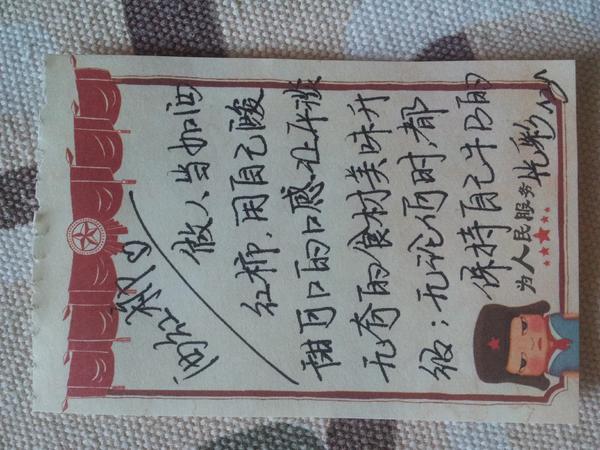 西红柿
做人当如西
红柿,用自己酸
甜可口的口感让平淡
无奇的食材美味升
级;无论何时都
保持自己牛B的
光彩
为人民服务